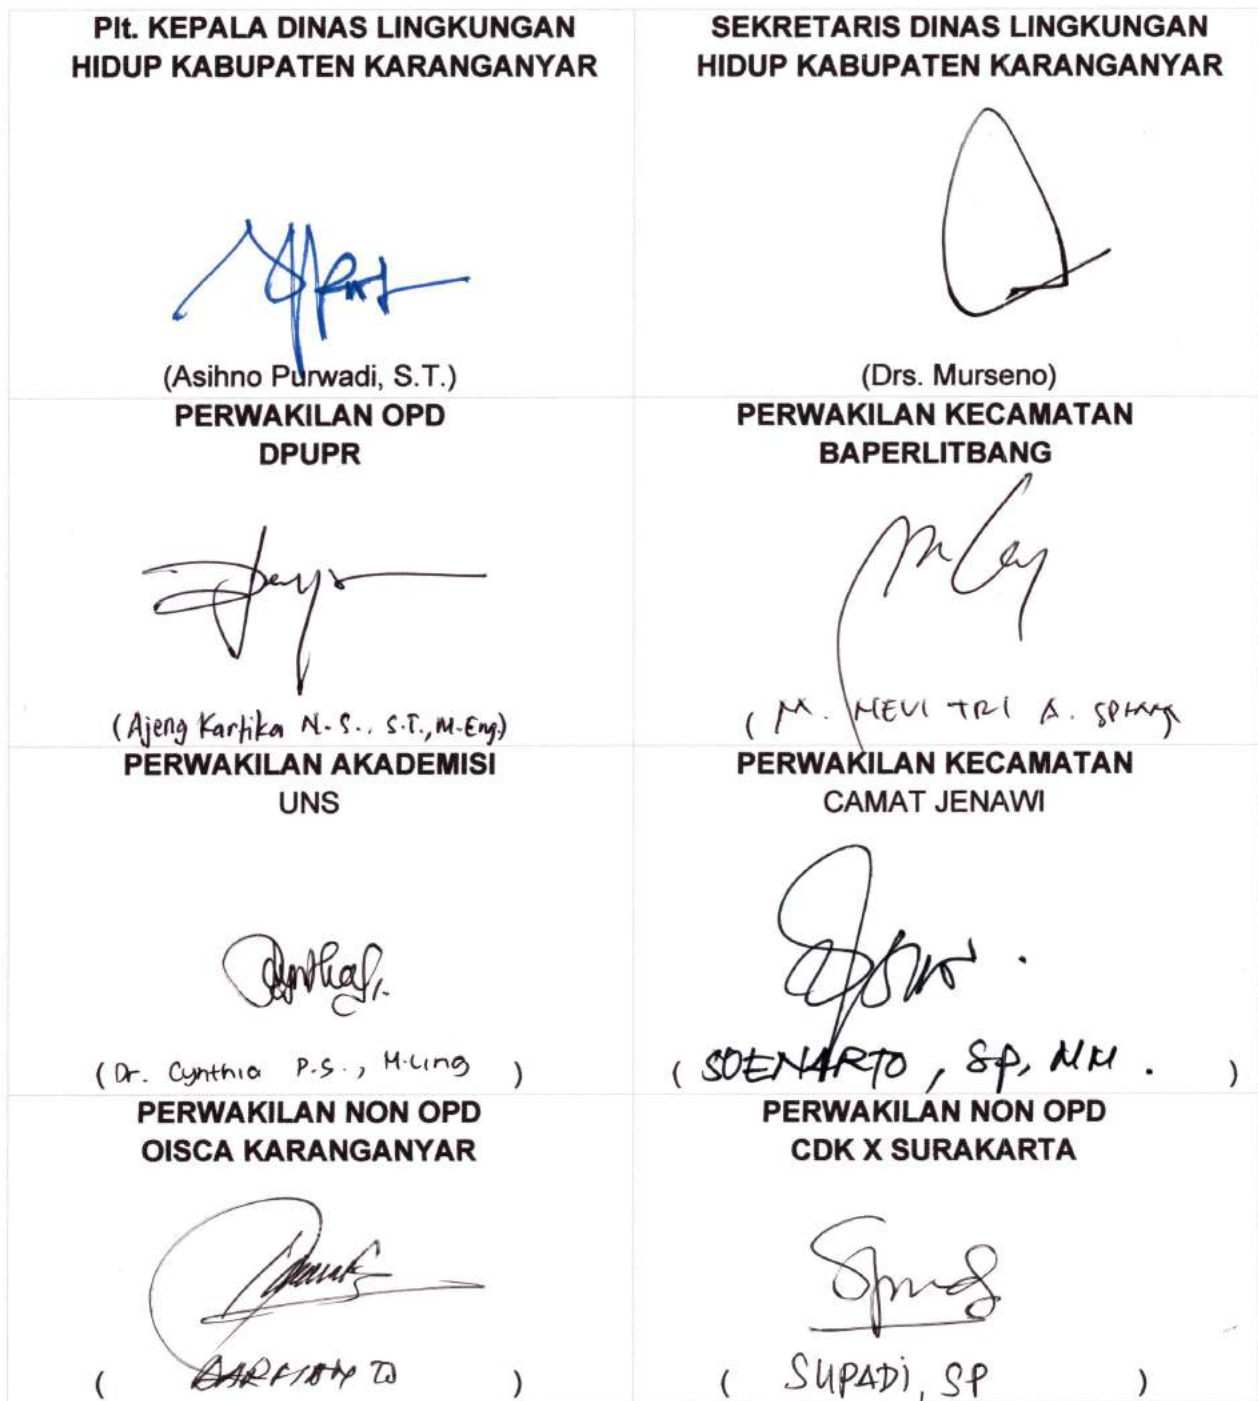 Plt. KEPALA DINAS LINGKUNGAN
HIDUP KABUPATEN KARANGANYAR
(Asihno Purwadi, S.T.)
SEKRETARIS DINAS LINGKUNGAN
HIDUP KABUPATEN KARANGANYAR
(Drs. Murseno)
PERWAKILAN OPD
DPUPR
(Ajeng Kartika N.S., S.T., M.Eng)
PERWAKILAN KECAMATAN
BAPERLITBANG
( M. NEVI TRI A.
PERWAKILAN AKADEMISI
UNS
(Dr. Cynthia P.S., M.Ling )
PERWAKILAN KECAMATAN
CAMAT JENAWI
( SOENARTO, SP, MM. )
PERWAKILAN NON OPD
OISCA KARANGANYAR
( )
PERWAKILAN NON OPD
CDK X SURAKARTA
( SUPADi, SP )